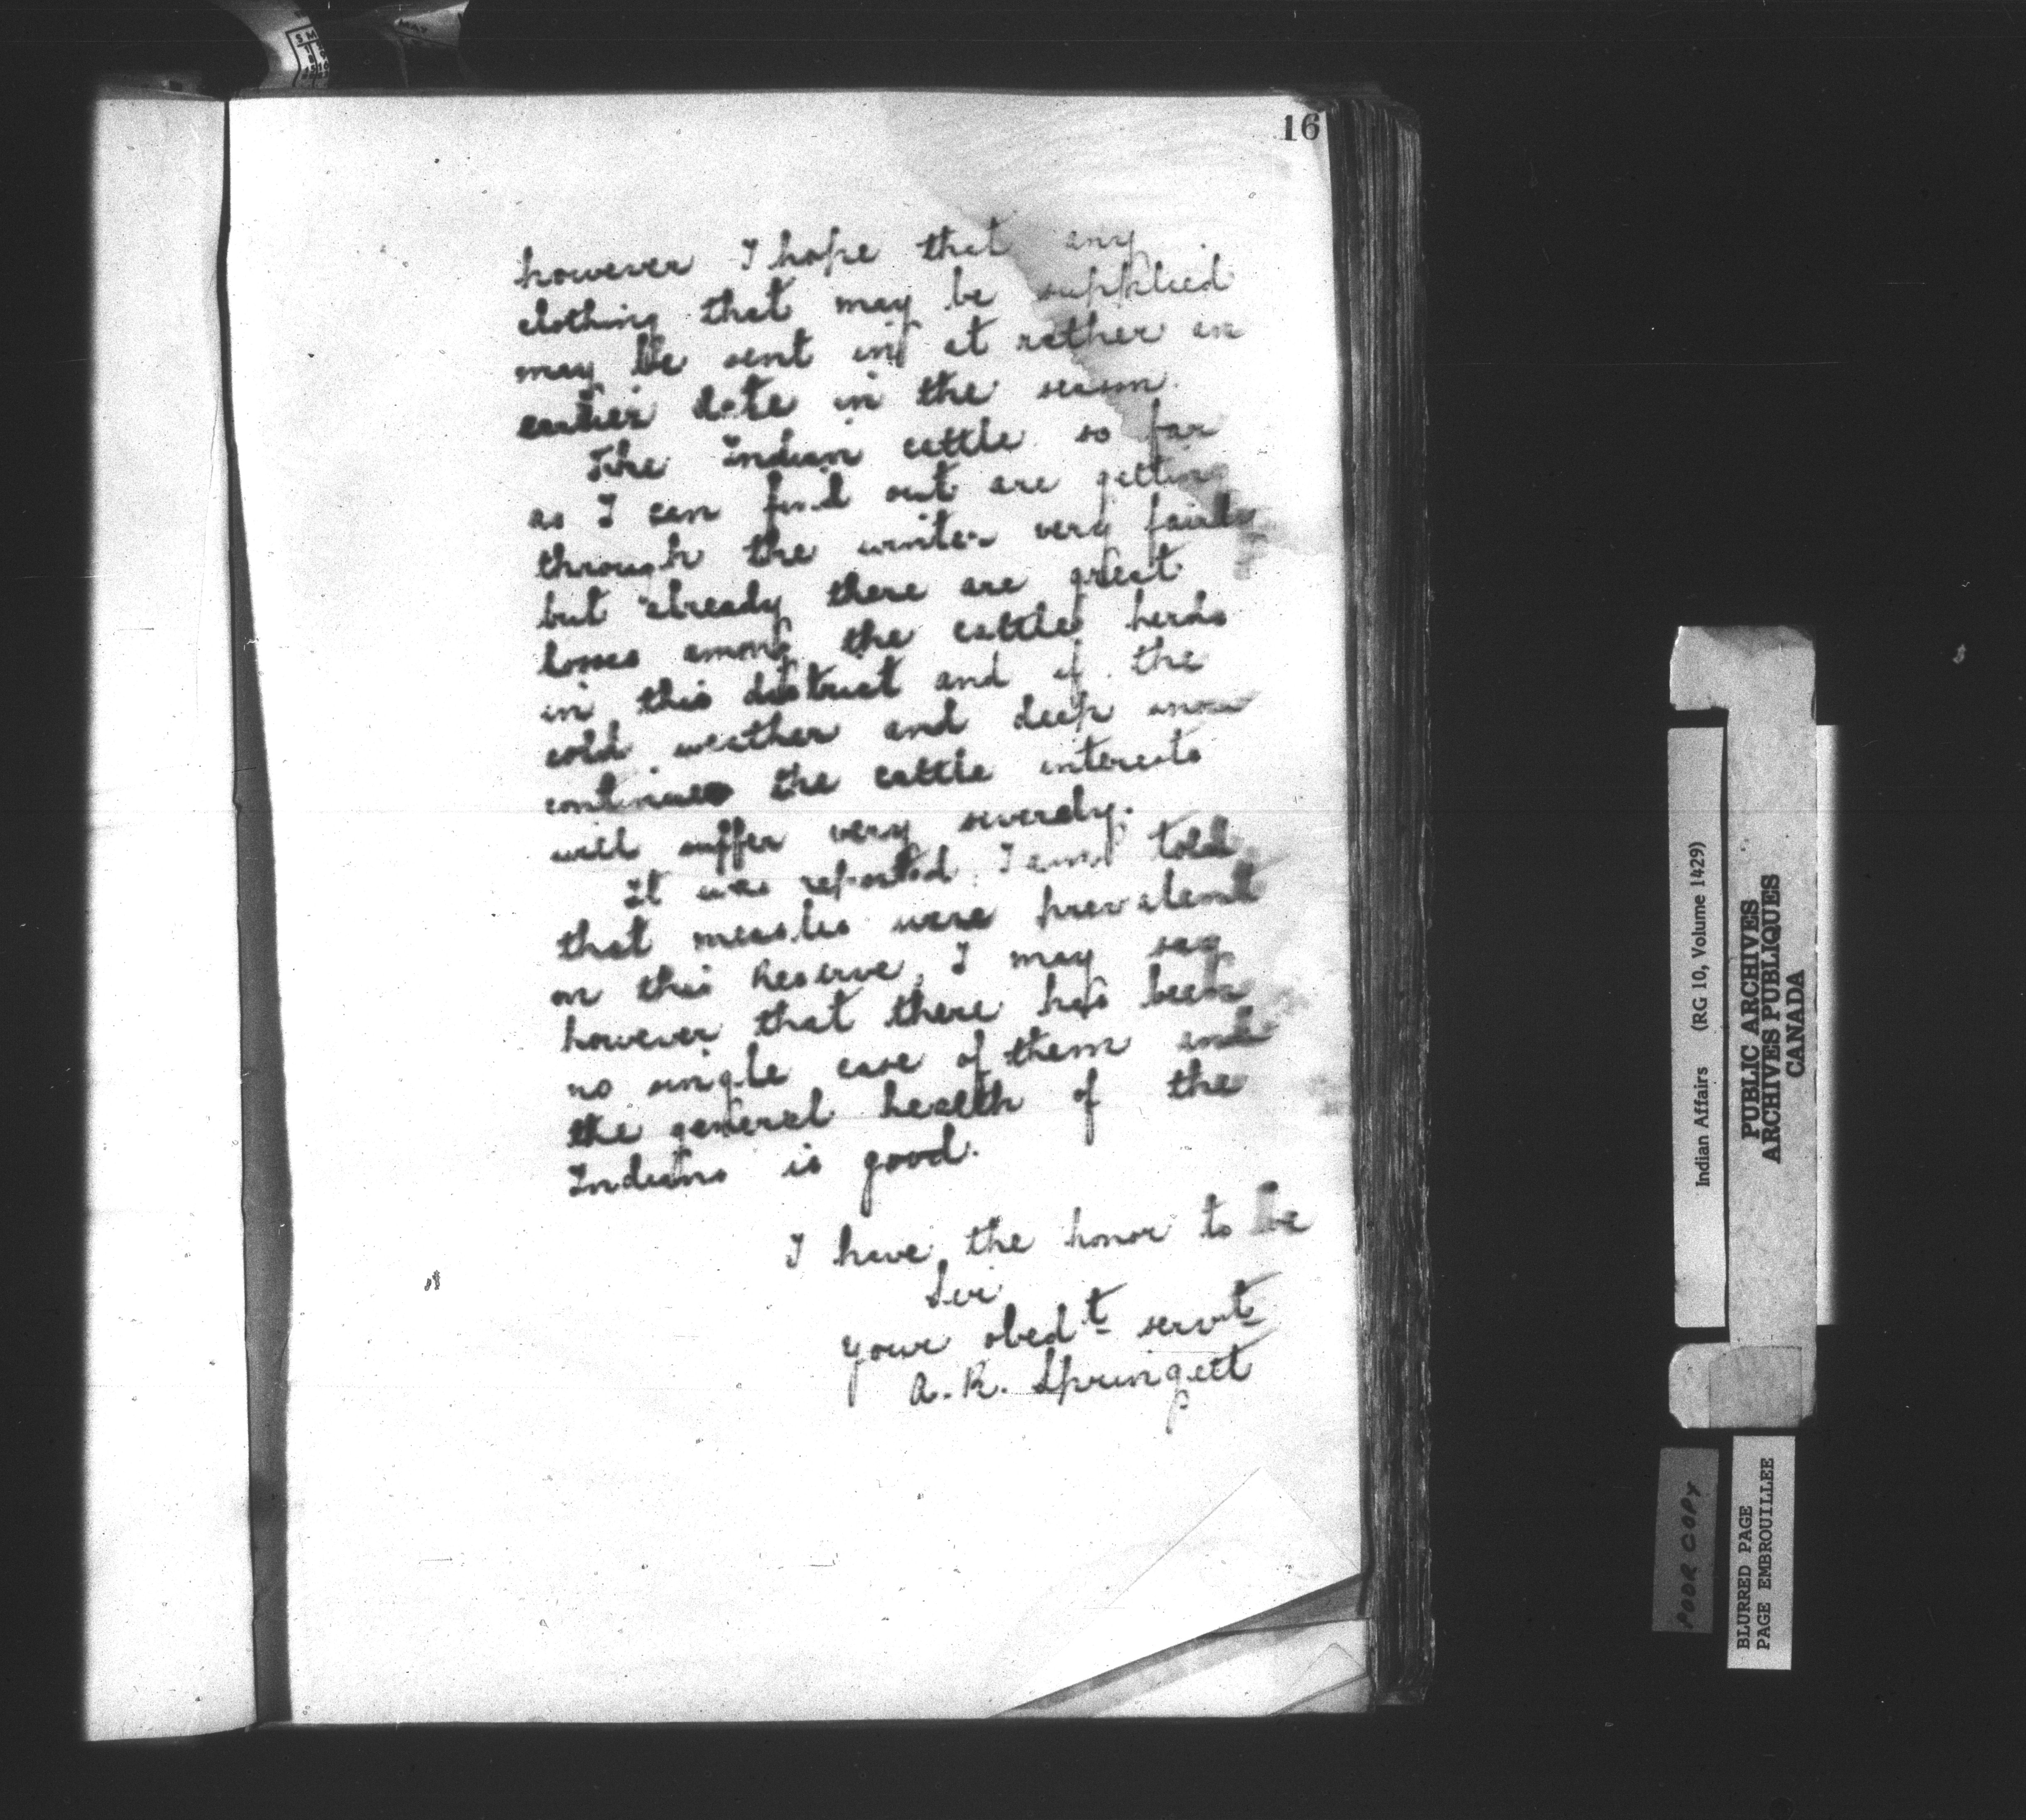 16
however I hope that any
clothing that may be supplied
may be sent in at rather an
earlier date in the season.
The Indian cattle so far
as I can find out are getting
through the winter very fairly
but already there are great
losses among the cattle herds
in this district and if the
cold weather and deep snow
continues the cattle interests
will suffer very severely.
It was reported I am told
that measles were prevalent
on this Reserve, I may say
however that there has been
no single case of them and
the general health of the
Indians is good.
I have the honor to be
Sir
your obedt servt
A. R. Springett
Indian Affairs (RG 10, Volume 1429)
PUBLIC ARCHIVES
ARCHIVES PUBLIQUES
CANADA
POOR COPY
BLURRED PAGE
PAGE EMBROUILLEE